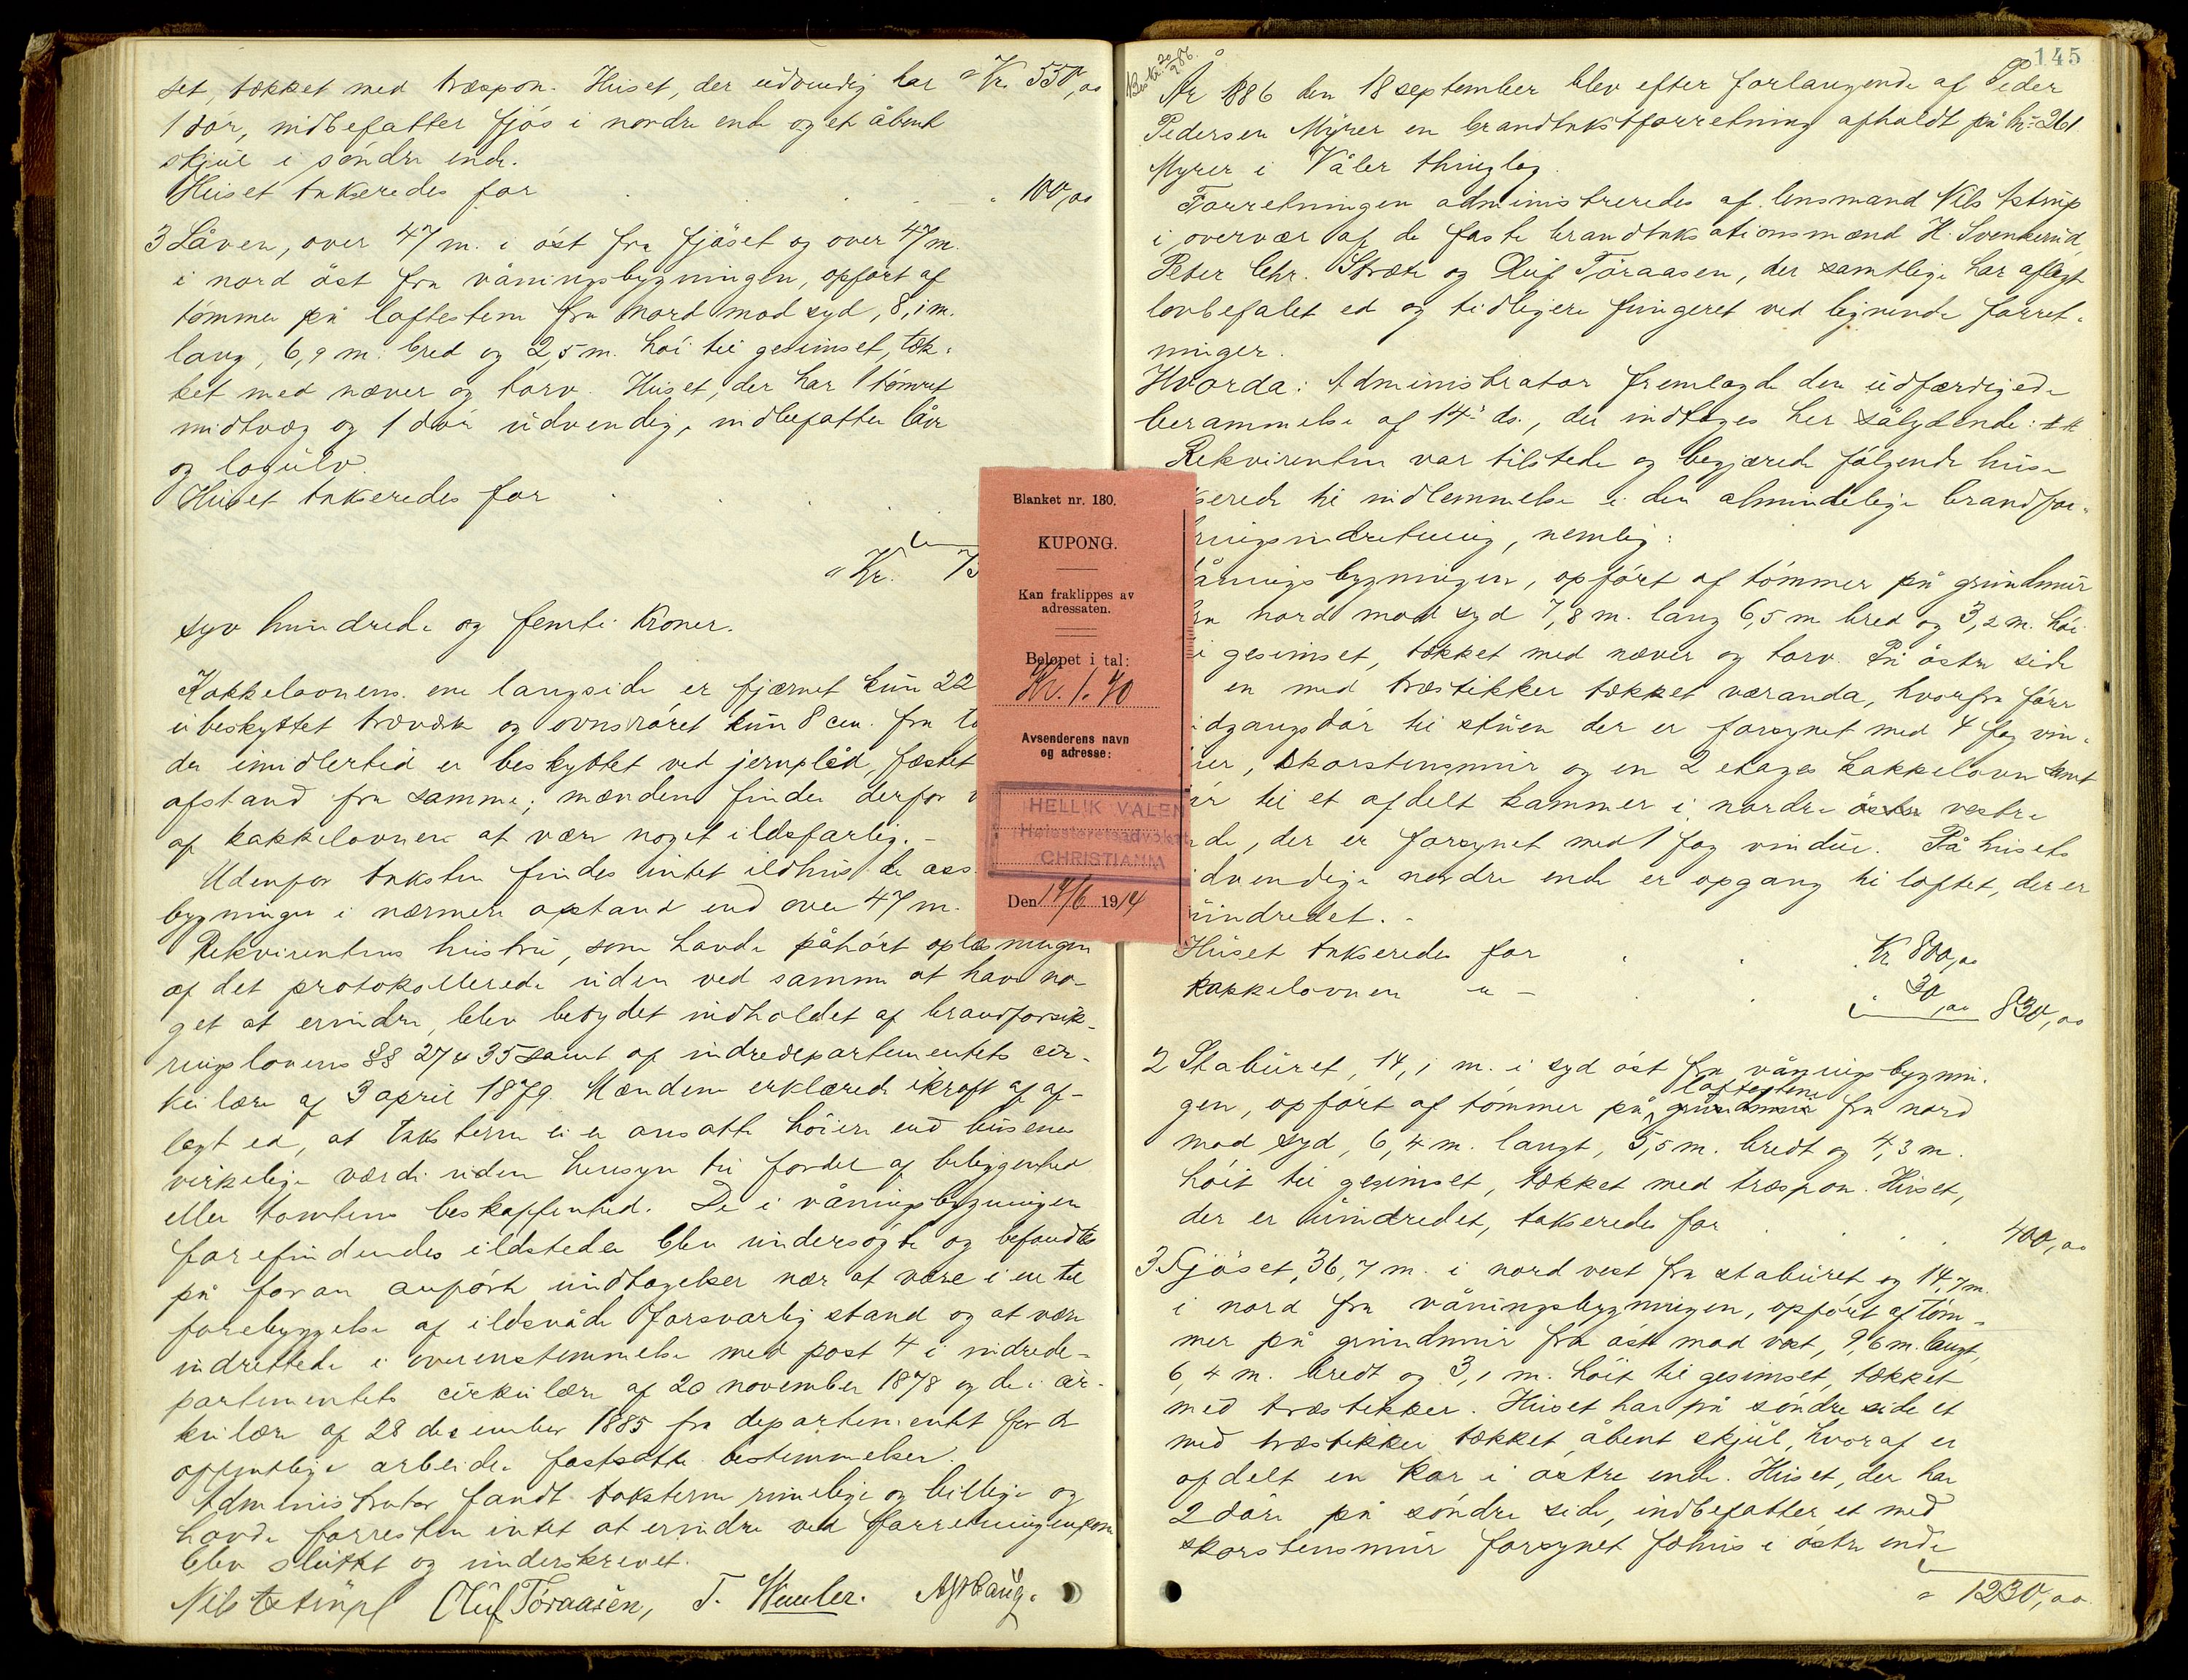 set, tækket med træspon. Huset, der udvendig har " Kr. 550,00
1 dör, indbefatter fjös i nordre ende og et åbent
skjul i söndre ende.
Huset takseredes for " 100,00
3 Låven, over 47 m. i öst fra fjöset og over 47 m.
i nord öst fra våningsbygningen, opfört af
tömmer på loftestene fra nord mod syd, 8,1 m.
lang, 6,9 m. bred og 2,5 m. höi til gesimset, tæk-
ket med næver og torv. Huset, der har 1 tömret
midtvæg og 1 dör udvendig, indbefatter låve
og logulv.
Huset takseredes for
" Kr. 75
syv hundrede og femti Kroner.
Kakkelovnens ene langside er fjærnet kun 22
ubeskyttet træværk og ovnsröret kun 8 cm. fra
der imidlertid er beskyttet ved jernplåd, fæstet
afstand fra samme; mændene finder derfor
af kakkelovnen at være noget ildsfarlig. -
Udenfor taksten findes intet ildhus. de ass.
bygninger i nærmere afstand end over 47 m.
Rekvirentens hustru, som havde påhört oplæsningen
af det protokollerede uden ved samme at have no-
get at erindre, blev betydet indholdet af brandforsik-
ringslovens §§ 27 & 35 samt af indredepartementets cir-
kulære af 3 april 1879. Mændene erklærede ikraft af af-
lagt ed, at taksterne ei er ansatte höiere end husenes
virkelige værdi uden hensyn til fordel af beliggenhed
eller tomtens beskaffenhed. De i våningsbygningen
forefindendes ildsteder blev undersögte og befandtes
på foran anförte undtagelser nær at være i en til
forebyggelse af ildsvåde forsvarlig stand og at være
indrettede i overensstemmelse med post 4 i indrede-
partementets cirkulære af 20 november 1878 og de i cir-
kulære af 28 december 1885 fra departementet for de
offentlige arbeider fastsatte bestemmelser.
Administrator fandt taksterne rimelige og billige og
havde forresten intet at erindre ved forretningen som
blev sluttet og underskrevet.
Nils Astrup Oluf Töraasen, T. Wauler.
Blanket nr. 180.
KUPONG.
Kan fraklippes av
adressaten.
Beløpet i tal:
Kr. 1.70
Avsenderens navn
og adresse:
HELLIK VALEN
Høiesteretsadvokat
CHRISTIANIA
Den 17/6 1914
145
År 1886 den 18 september blev efter forlangende af Peder
Pedersen Myrer en brandtakstforretning afholdt på № 261
Myrer i Våler thinglag.
Forretningen administreredes af lensmand Nils Astrup
i overvær af de faste brandtaksationsmænd H. Svenkerud,
Peter Chr. Stræte og Oluf Töraasen, der samtlige har aflagt
lovbefalet ed og tidligere fungeret ved lignende forret-
ninger.
Hvorda: Administrator fremlagde den udfærdigede
berammelse af 14de ds., der indtages her sålydende:
Rekvirenten var tilstede og begjærede fölgende huse
serede til indlemmelse i den almindelige brandfor-
ringsindretning, nemlig:
åningsbygningen, opfört af tömmer på grundmur
ra nord mod syd 7,8 m. lang 6,5 m bred og 3,2 m. höi
i gesimset, tækket med næver og torv. På östre side
en med træstikker tækket væranda, hvorfra förer
dgangsdör til stuen der er forsynet med 4 fag vin-
uer, skorstensmur og en 2 etages kakkelovn samt
ör til et afdelt kammer i nordre östre vestre
de, der er forsynet med 1 fag vindue. På husets
dvendige nordre ende er opgang til loftet, der er
uindredet. -
Huset takseredes for Kr 800,00
Kakkelovnen " - " 30,00 830,00
2 Staburet, 14,1 m. i syd öst fra våningsbygnin-
gen, opfört af tömmer på loftestene grundmur fra nord
mod syd, 6,4 m. langt, 5,5 m. bredt og 4,3 m.
höit til gesimset, tækket med træspon. Huset,
der er uindredet, takseredes for 400,00
3 Fjöset, 36,7 m. i nord vest fra staburet og 14,7 m.
i nord fra våningsbygningen, opfört af töm-
mer på grundmur fra öst mod vest, 9,6 m. langt,
6,4 m. bredt og 3,1 m. höit til gesimset, tækket
med træstikker. Huset har på söndre side et
med træstikker tækket åbent skjul, hvoraf er
afdelt en bar i östre ende. Huset, der har
2 döre på söndre side, indbefatter et med
skorstensmur forsynet föhus i östre ende
" 1230,00